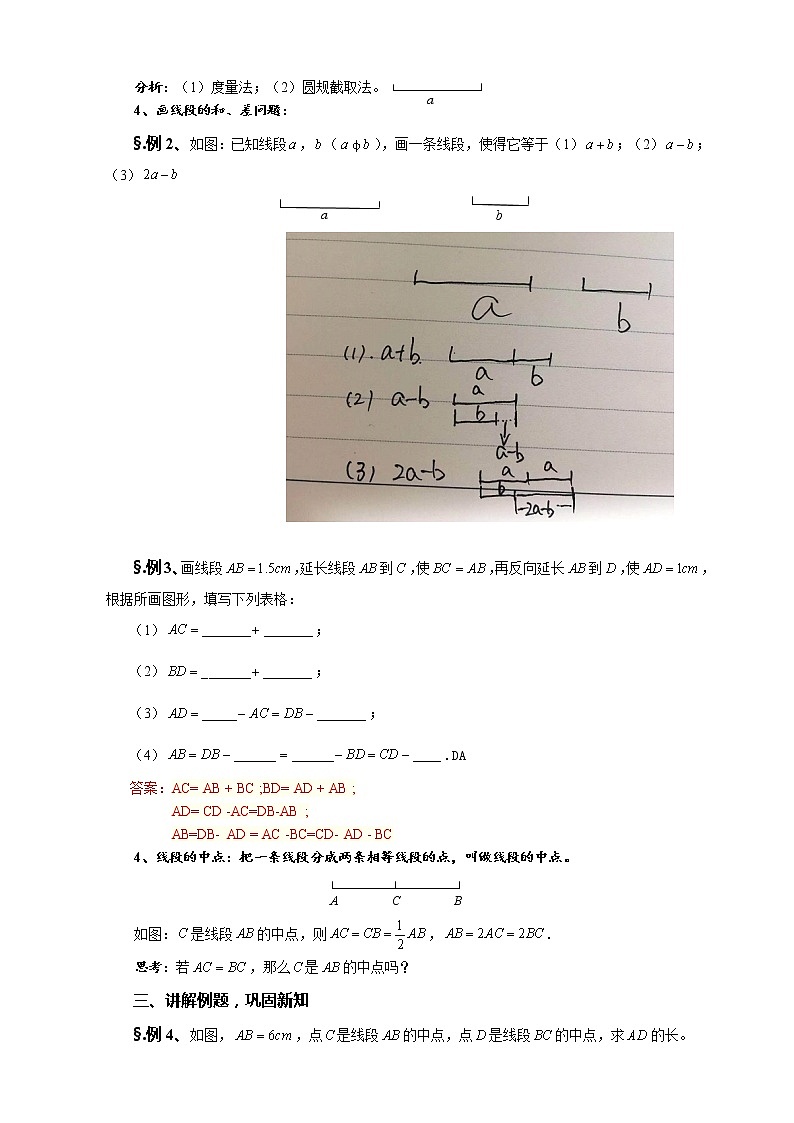 分析：（1）度量法；（2）圆规截取法。
a
4、画线段的和、差问题：
§.例2、如图：已知线段a，b（aφb），画一条线段，使得它等于（1）a+b；（2）a−b；
（3）2a−b
a b
a b
(1). a+b.
a b
(2) a-b
a
b
a-b
(3) 2a-b
a a
b
-2a-b-
§.例3、画线段AB=1.5cm,延长线段AB到C,使BC=AB,再反向延长AB到D,使AD=1cm，
根据所画图形，填写下列表格：
（1）AC=_______+_______；
（2）BD=_______+_______；
（3）AD=_____−AC=DB−_______；
（4）AB=DB−______=______−BD=CD−____.DA
答案：AC= AB + BC ;BD= AD + AB ;
AD= CD -AC=DB-AB ;
AB=DB- AD = AC -BC=CD- AD - BC
4、线段的中点：把一条线段分成两条相等线段的点，叫做线段的中点。
A C B
如图：C是线段AB的中点，则AC=CB=1/2AB，AB=2AC=2BC.
思考：若AC=BC，那么C是AB的中点吗？
三、讲解例题，巩固新知
§.例4、如图，AB=6cm，点C是线段AB的中点，点D是线段BC的中点，求AD的长。